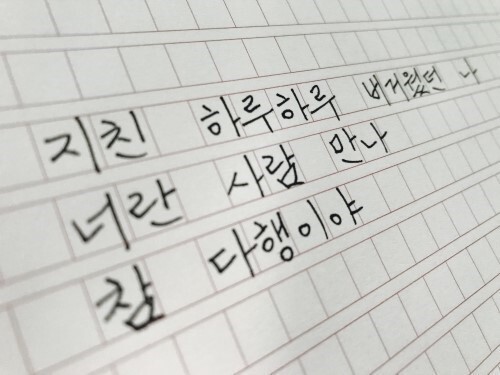 지친 하루하루 버거웠던 나
너란 사람 만나
참 다행이야